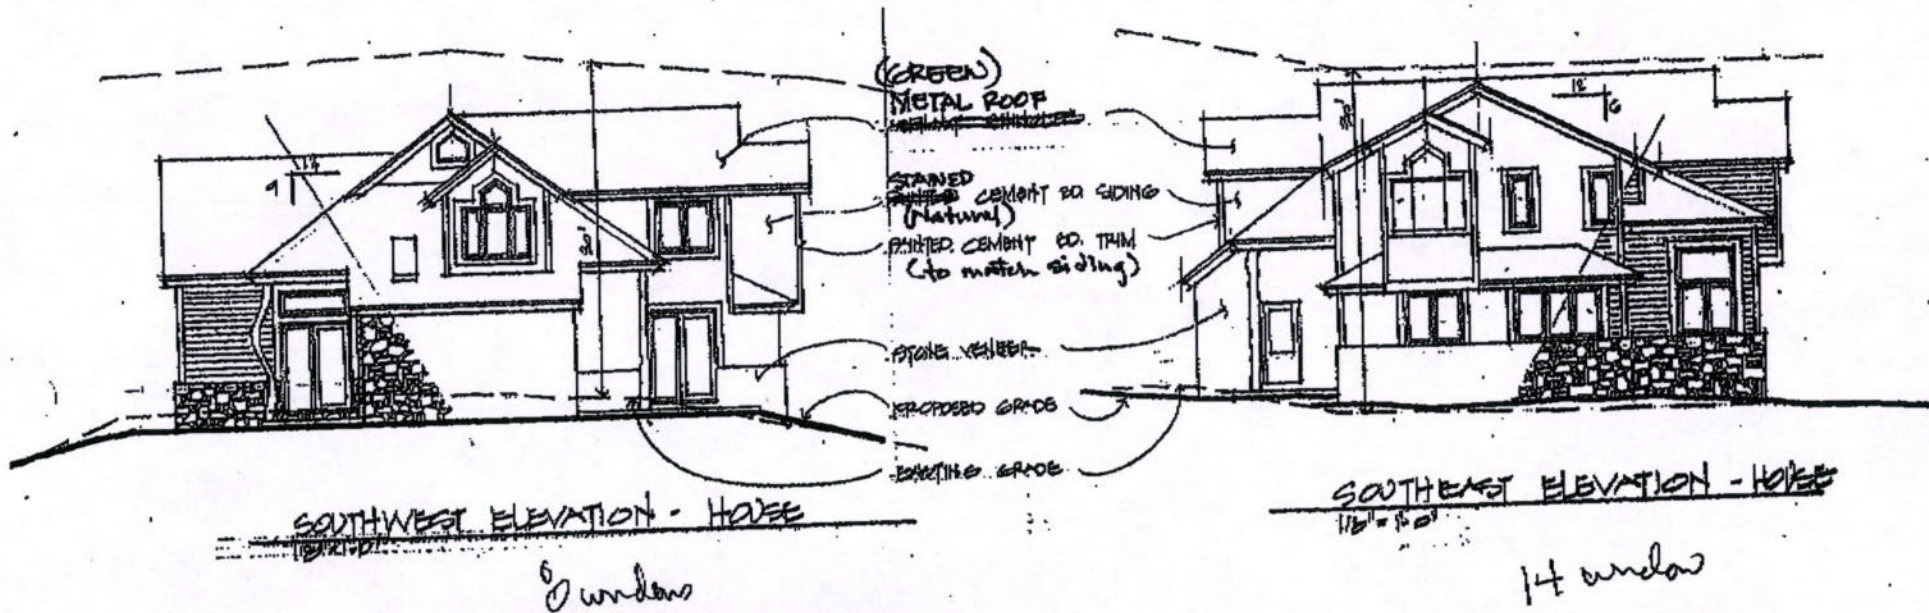 (GREEN)
METAL ROOF
STAINED
CEMENT BD. SIDING
(Natural)
PAINTED CEMENT BD. TRIM
(to match siding)
STONE VENEER
PROPOSED GRADE
EXISTING GRADE
12
9
32'
12
6
32'
SOUTHWEST ELEVATION - HOUSE
1/8"=1'-0"
8 windows
SOUTHEAST ELEVATION - HOUSE
1/8"=1'-0"
14 window